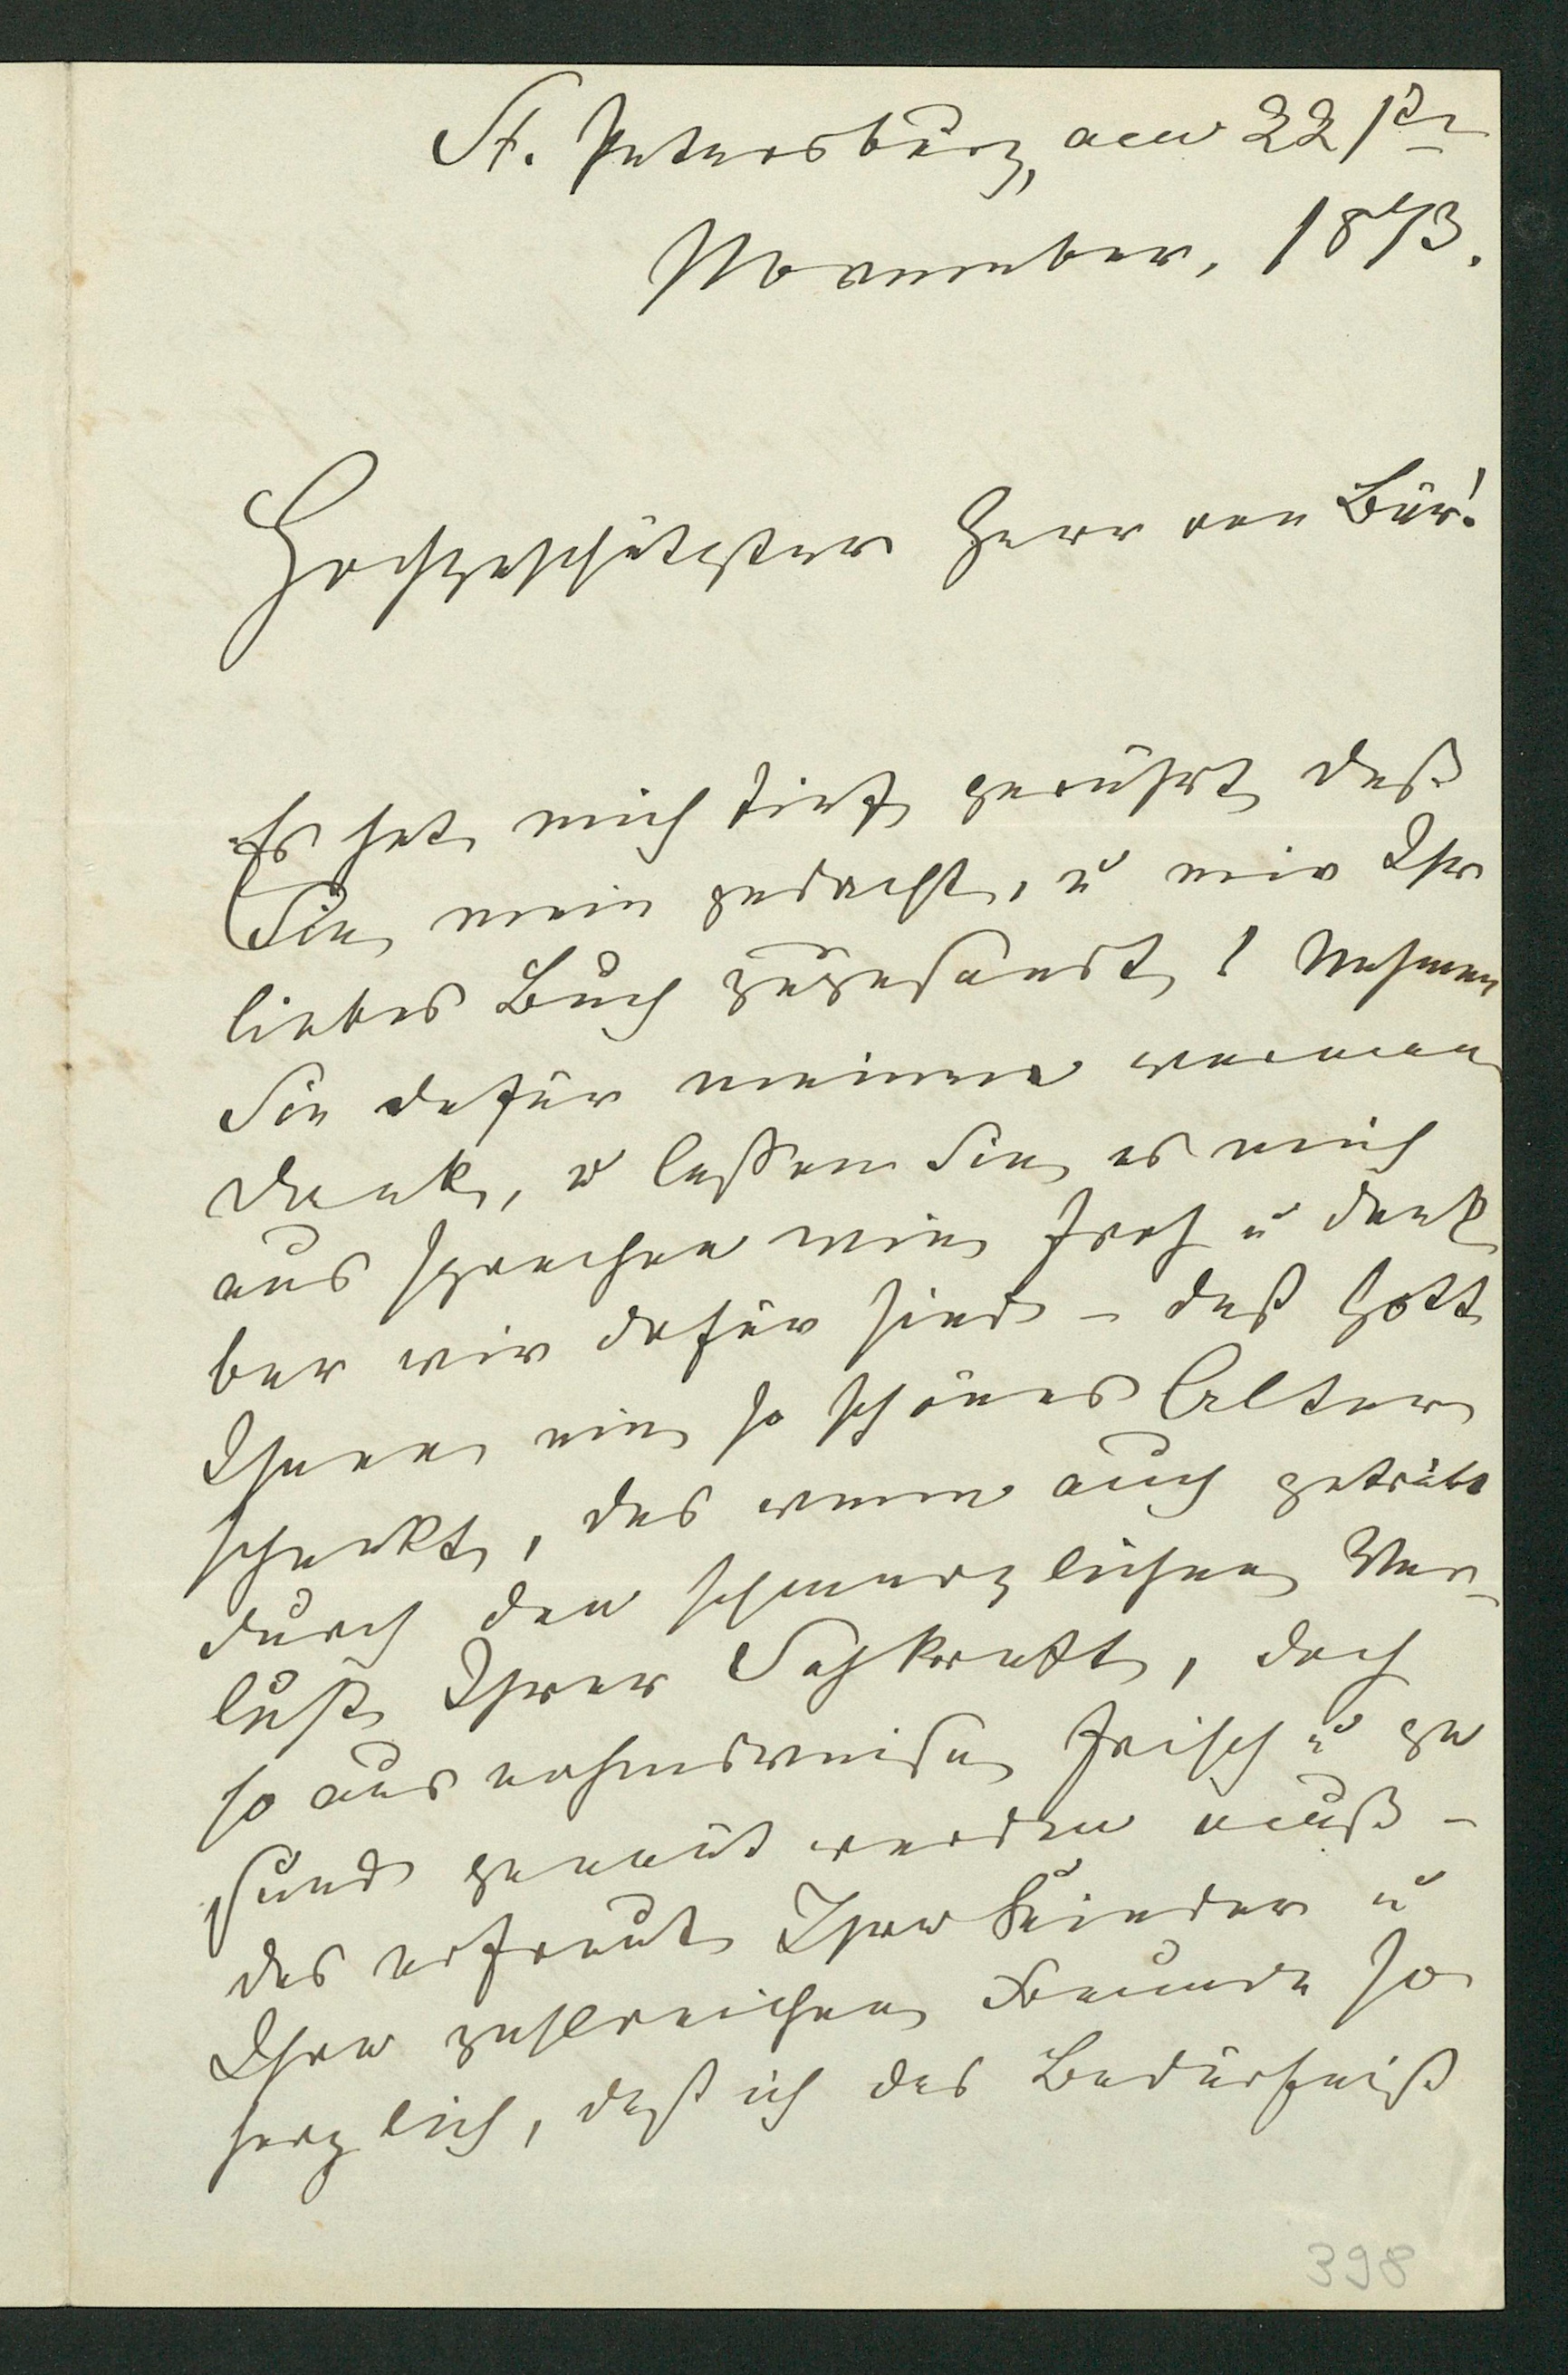 St. Petersburg, am 22ste
November, 1873.
Hochgeschätzter Herr von Bär!
Es hat mich tief gerührt daß
Sie mein gedacht, u mir Ihr
liebes Buch zugesandt! Nehmen
Sie dafür meinen warmen
Dank, u laßen Sie es mich
aus sprechen wie froh u dank
bar wir dafür sind – daß Gott
Ihnen ein so schönes Alter
schenkt, das wenn auch getrübt
durch den schmerzlichen Ver-
lust Ihrer Sehkraft, doch
so ausnahmsweise frisch u ge
sund genannt werden muß –
das erfreut Ihre Kinder u
Ihre zahlreichen Freunde so
herzlich, daß ich das Bedürfniß
398